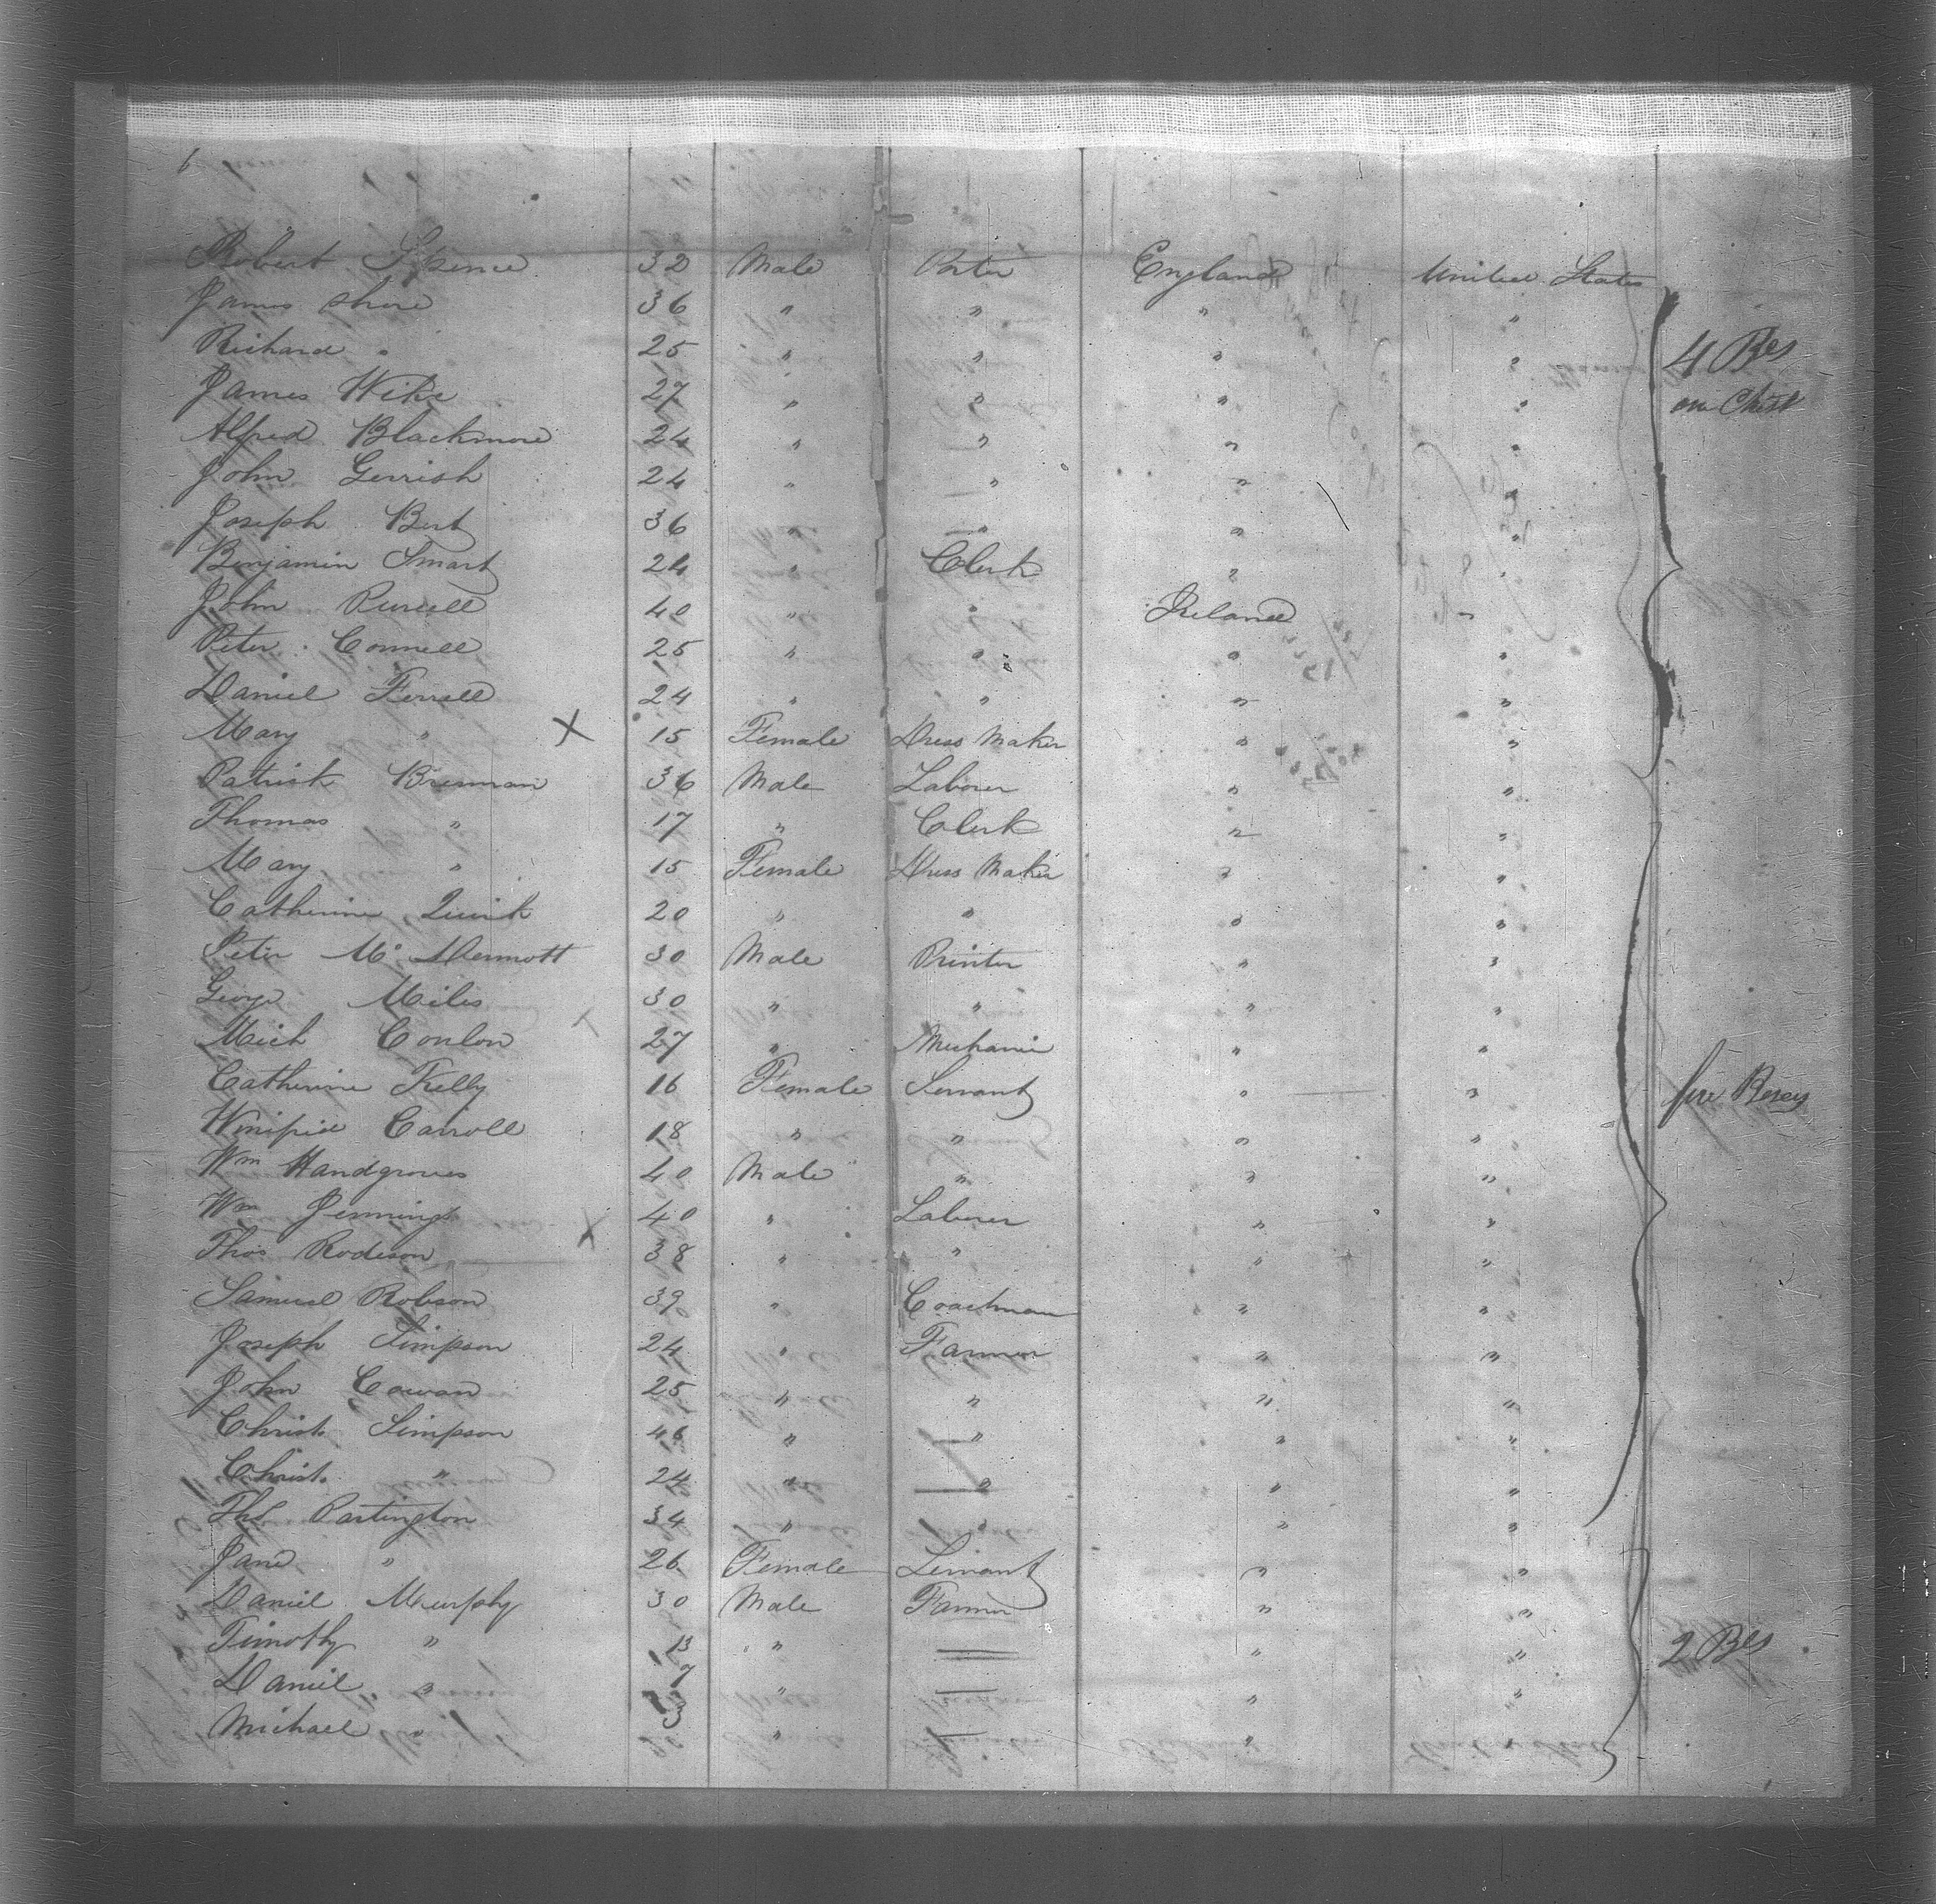 6
Robert Spence 32 Male Porter England United States
James Shore 36 " " " "
Richard " 25 " " " " 4 Bes
James Wike 27 " " " " one Chest
Alfred Blackmore 24 " " " "
John Gerrish 24 " " " "
Joseph Bert 36 " " " "
Benjamin Smart 24 " Clerk " "
John Pursell 40 " " Ireland "
Peter Connell 25 " " " "
Daniel Ferrell 24 " " " "
Mary " X 15 Female Dress Maker " "
Patrick Brennan 36 Male Laborer " "
Thomas " 17 " Clerk " "
Mary " 15 Female Dress Maker " "
Catherine Quirk 20 " " " "
Peter McDermott 30 Male Printer " "
George Miles 30 " " " "
Mich Conlon 27 " Mechanic " "
Catherine Kelly 16 Female Servant " " five Boxes
Winifred Carroll 18 " " " "
Wm Handgroves 40 Male " " "
Wm Jennings 40 " Laborer " "
Thos Rodison X 38 " " " "
Samuel Robson 39 " Coachman " "
Joseph Simpson 24 " Farmer " "
John Cowan 25 " " " "
Christ. Simpson 46 " " " "
Christ. " 24 " " " "
Thos Partington 34 " " " "
Jane " 26 Female Servant " "
Daniel Murphy 30 Male Farmer " "
Timothy " 13 " " " 2 Bes
Daniel " 7 " " "
Michael " 3 " "